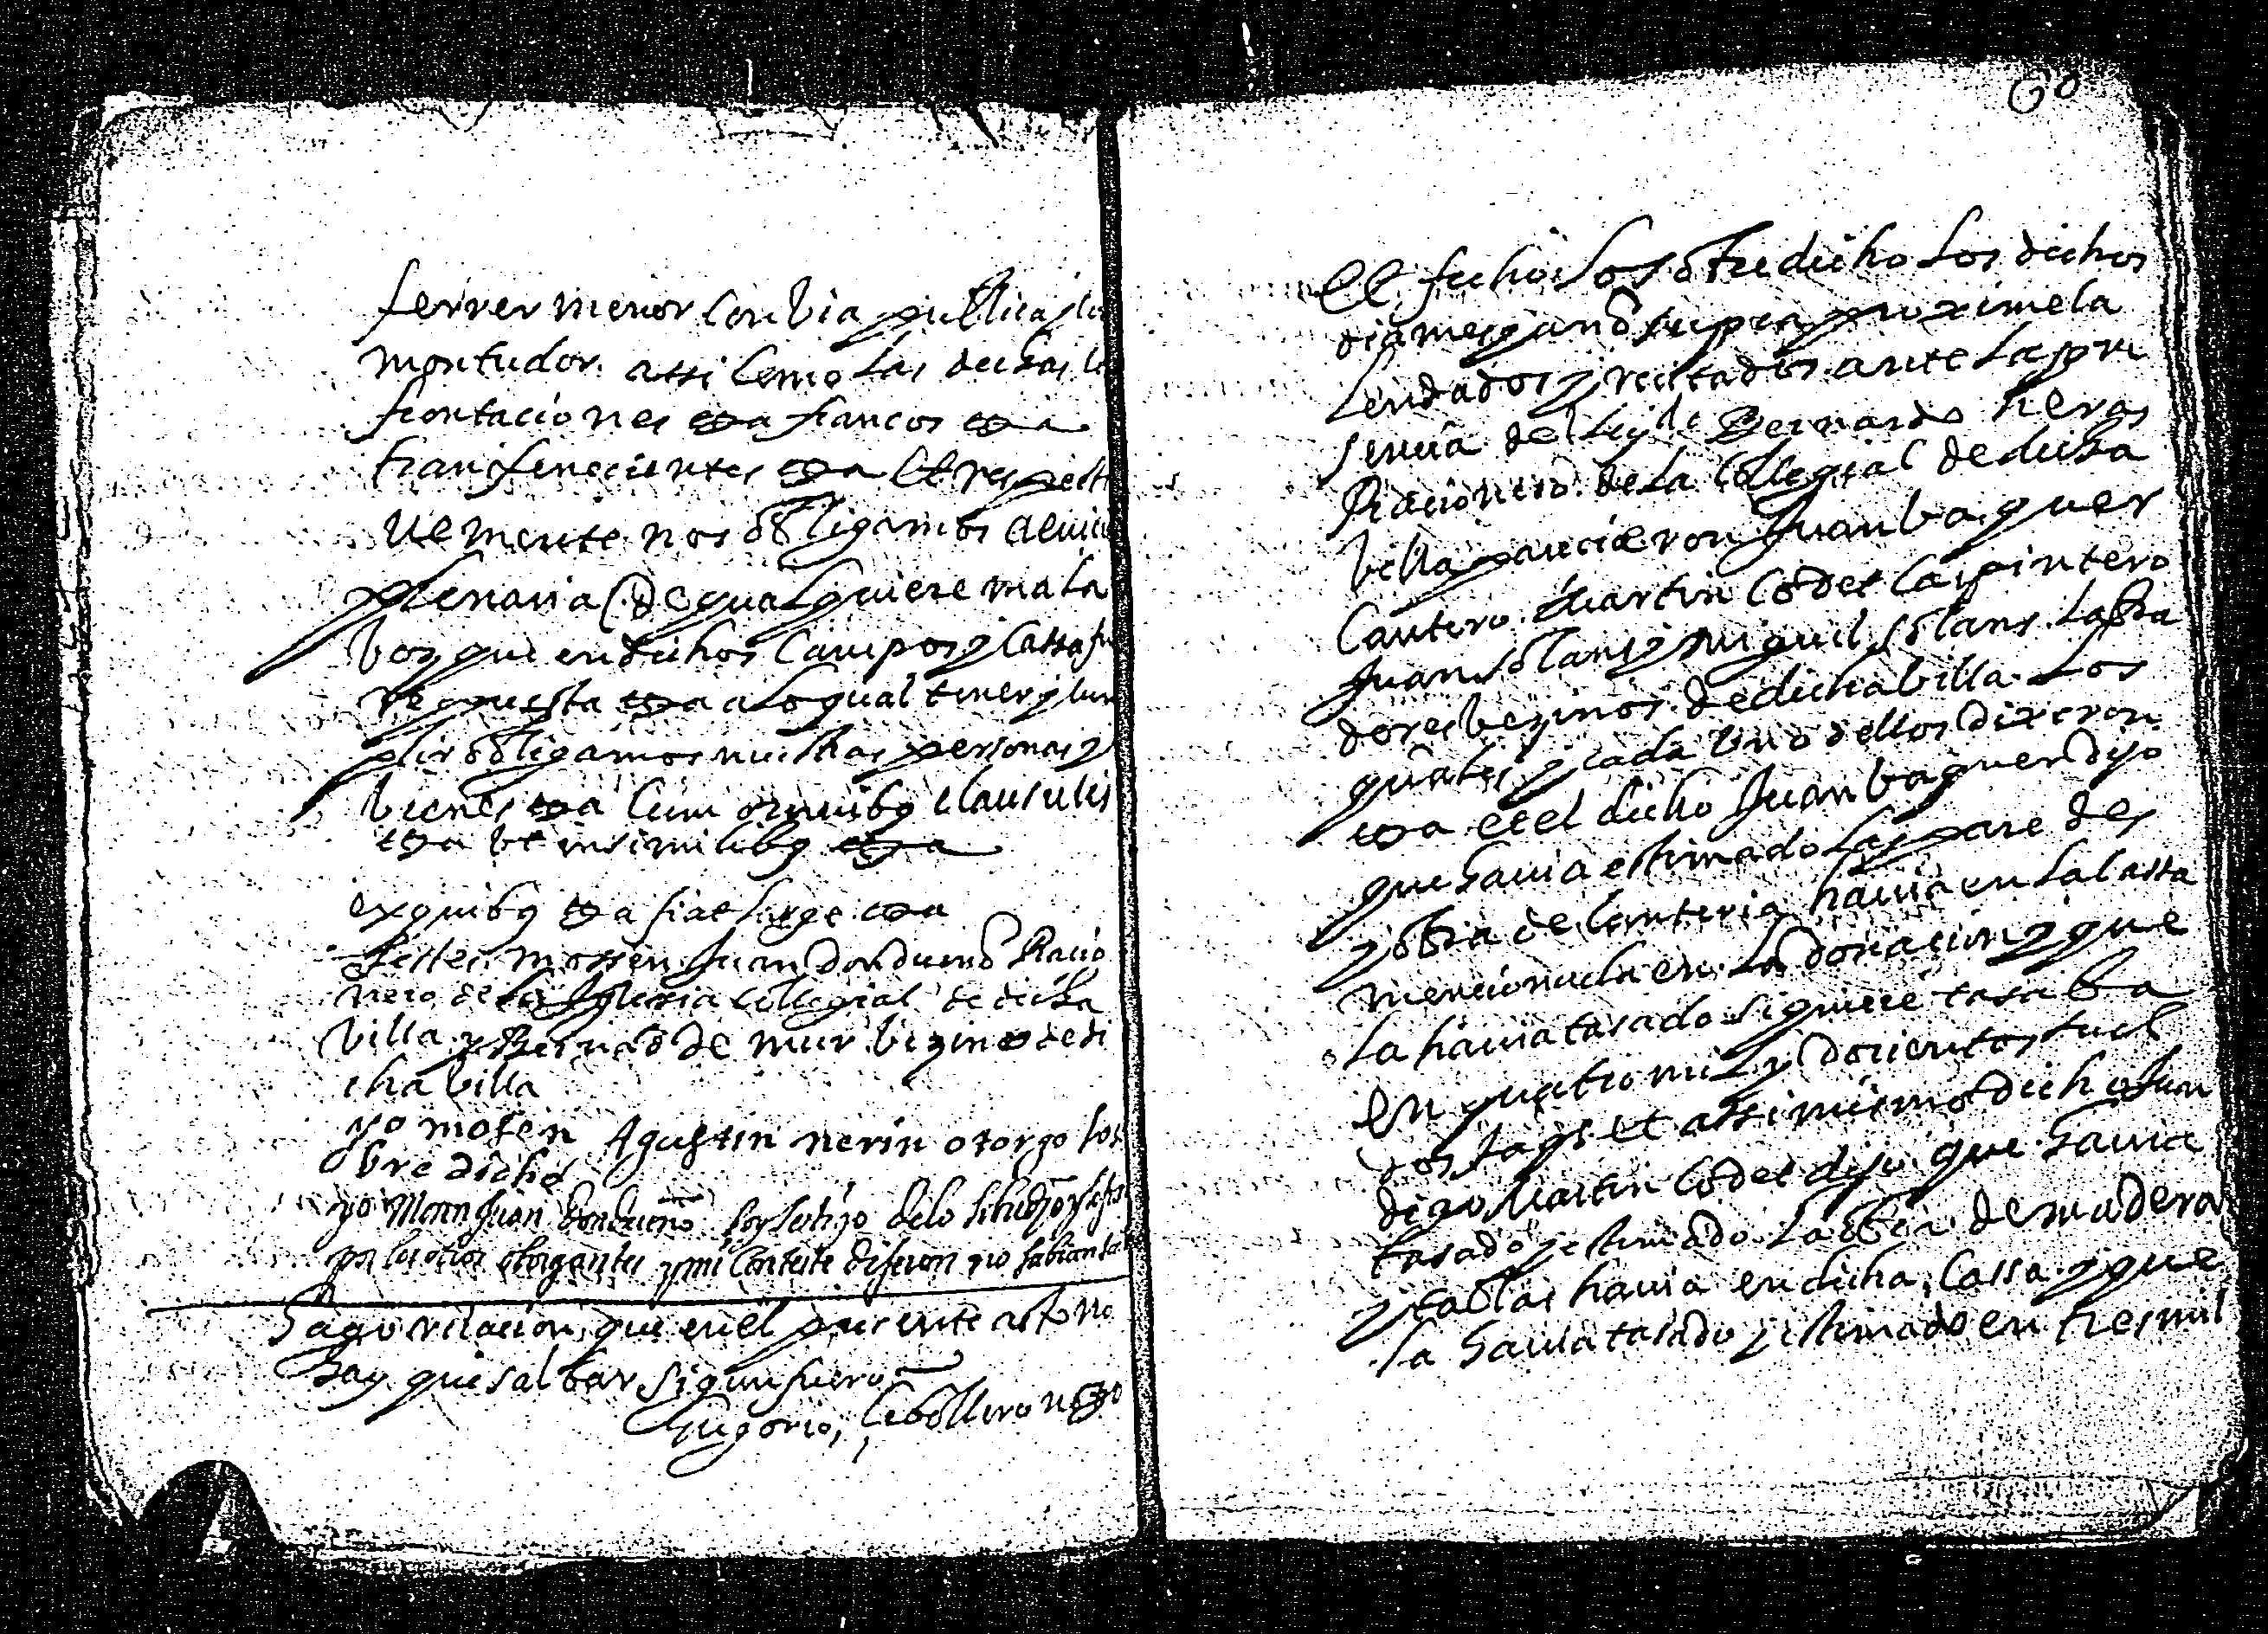 ferrer menor con via publica y con
montudor. assi como las dichas con
frontaciones etca francos etca
transferecientes etca Et respecti
uemente nos obligamos a euicion
plenaria de qualquiere mala
boz que en dichos Campos y Cassa fue
re puesta etca a lo qual tener y cum
plir obligamos nuestras personas y
bienes etca Cum omnibus clausulis
etca ut in similibus etca
exquibus etca fiat large etca
Testes mossen Juan Dondueno Racio
nero de la Iglesia Collegial de dicha
villa y Bernad de mur bezino de di
cha billa
yo mosen Agustin nerin otorgo so
bre dicho
yo Mosen Juan Dondueno soy testigo de lo sobredicho y firmo
por los otros otorgantes y mi Conteste dijeron no sabian
Hago relacion que en el presente acto no
hay que salbar sigun fuero
Gregorio Cebollero notro
60
Et fecho lo sobredicho los dichos
dia mes y año supra proxime ca
lendados y recitados ante la pre
sencia del Licdo Bernardo heros
Racionero de la Collegial de dicha
billa parecieron Juan baquer
Cantero Martin Codet Carpintero
Juan solans y miguel solans labra
dores bezinos de dicha billa Los
quales y cada uno dellos dixeron
etca et el dicho Juan baquer dijo
que hauia estimado las paredes
y obra de Canteria hauia en la Cassa
mencionada en la donacion y que
la hauia tasado siquiere tasaba
en quatro mil y docientos suel
dos Jaqs et assi mismo dicho Juan
digo Martin Codet dijo que hauia
tasado y estimado la obra de madera
y tablas hauia en dicha Cassa y que
la hauia tasado y estimado en tres mil